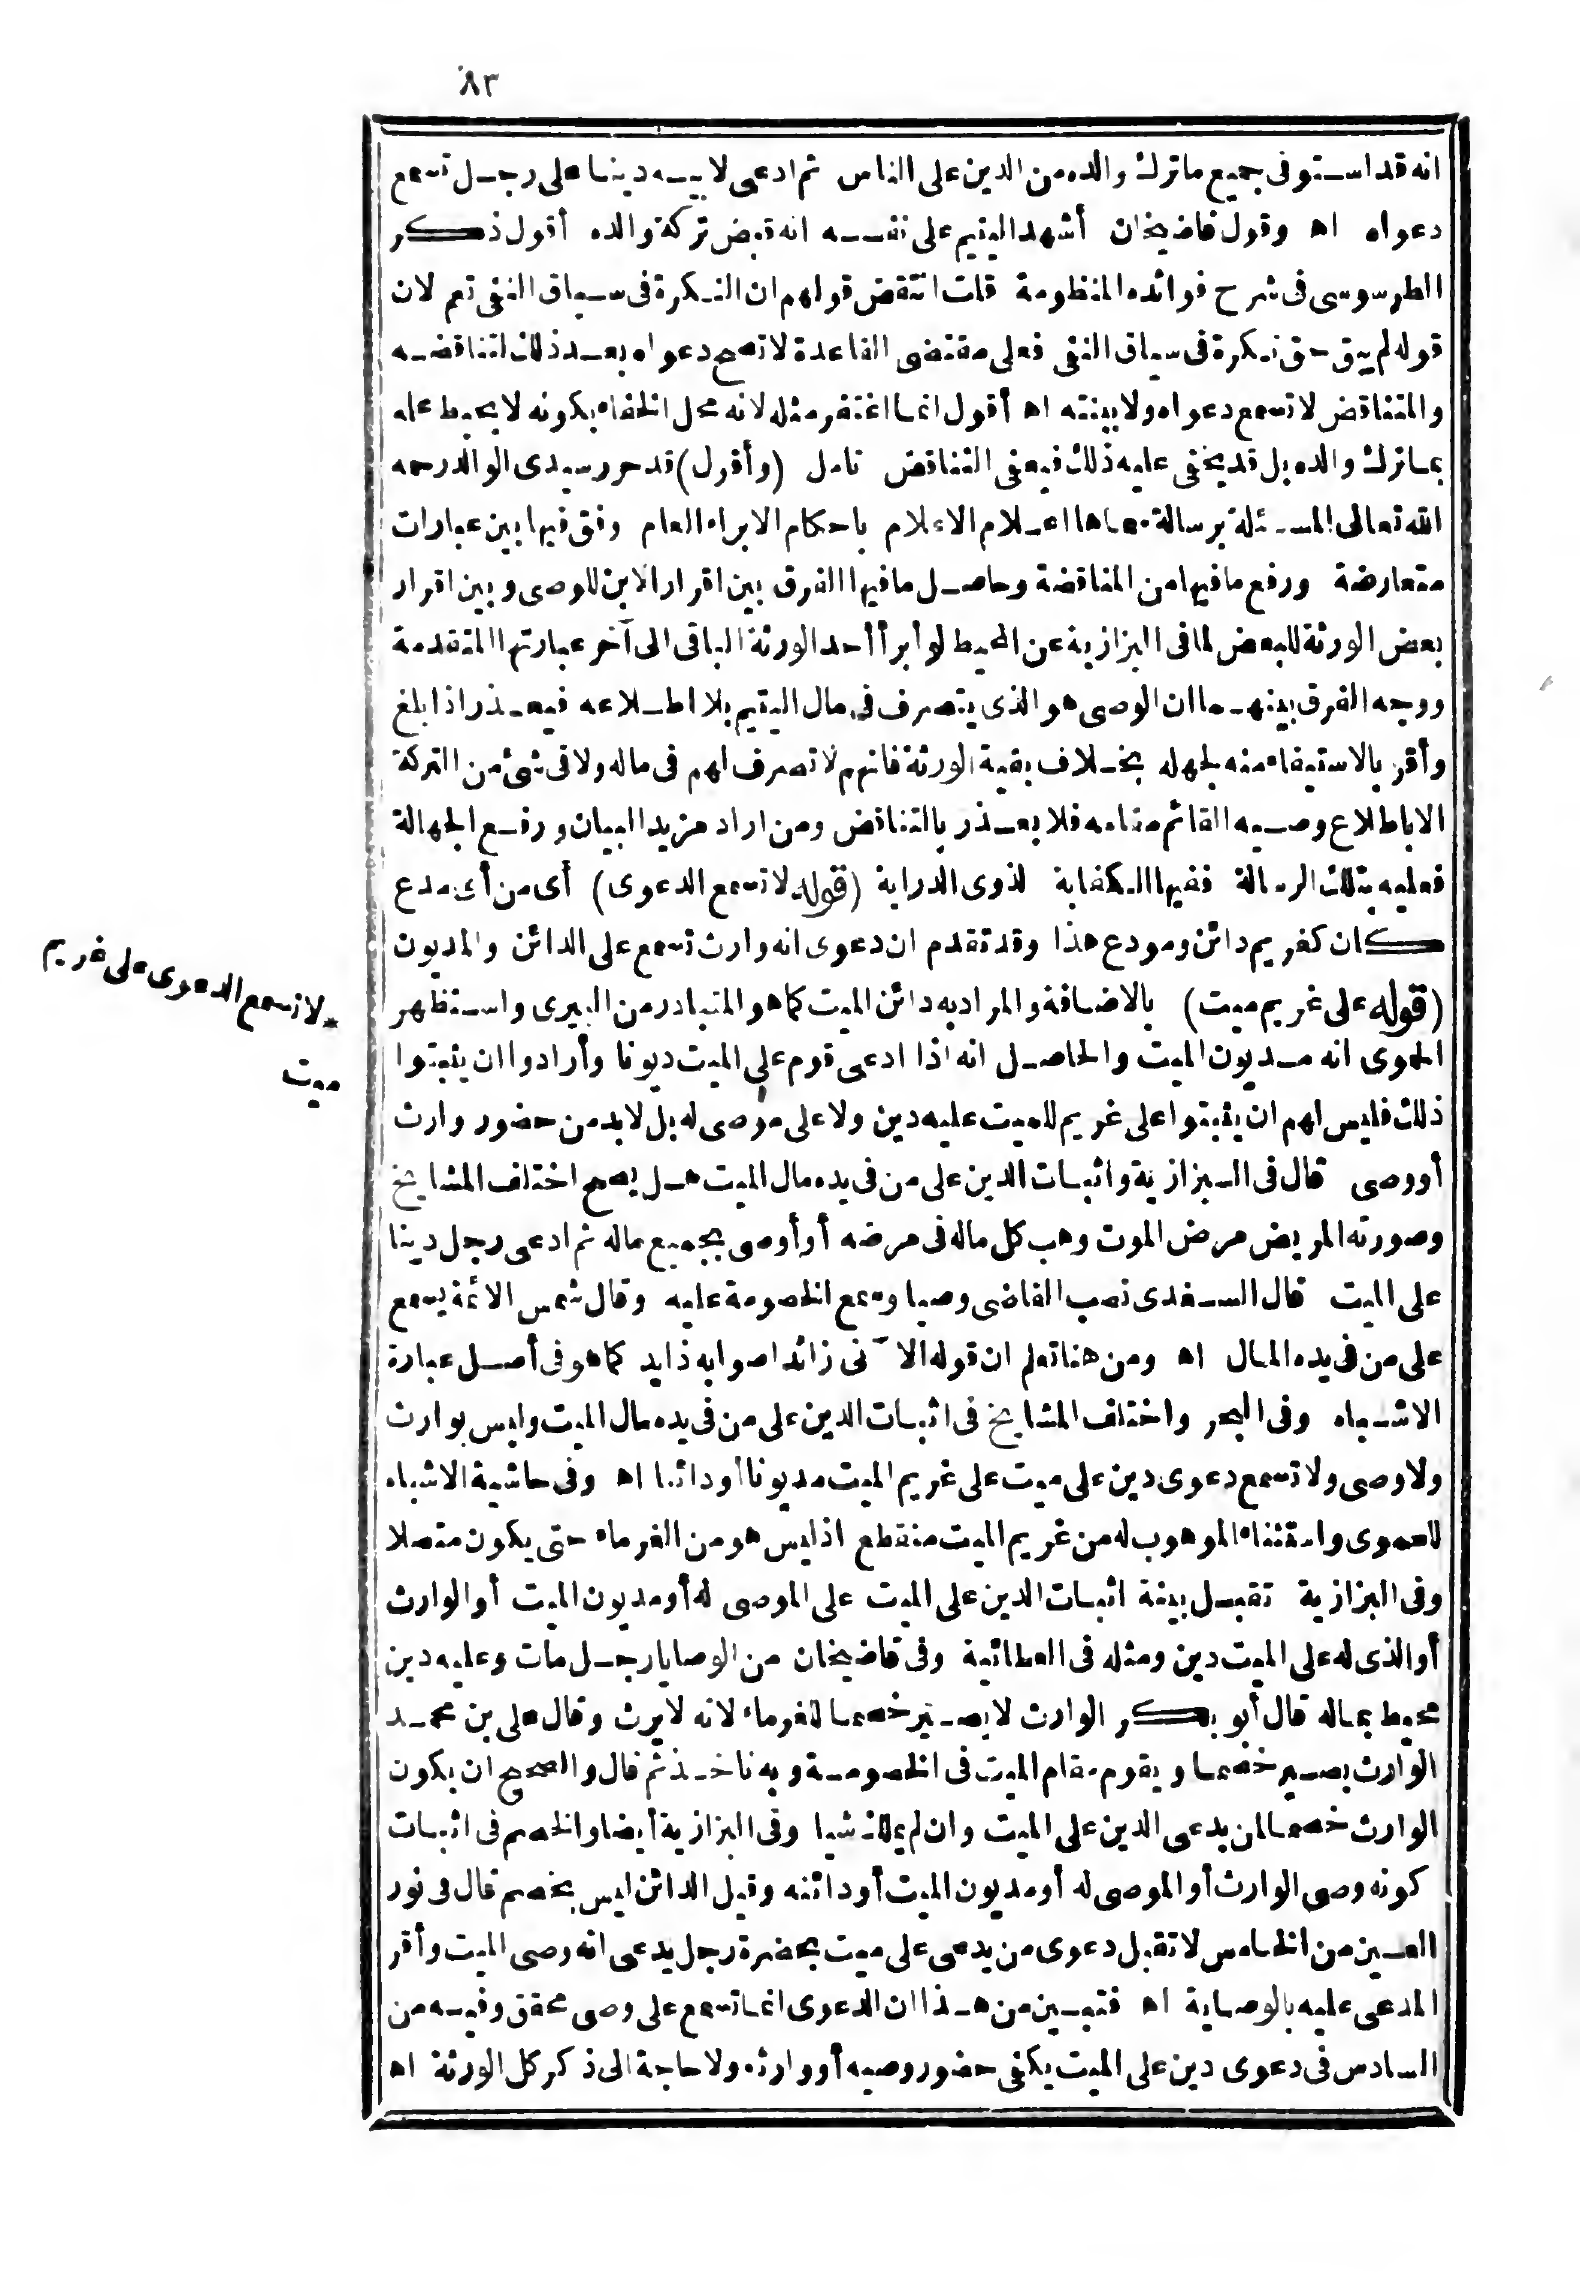 ٨٣
انه قد استوفى جميع ماترك والده من الدين على الناس ثم ادعى لابيه دينا على رجل تسمع
دعواه اه وقول قاضيخان أشهد اليتيم على نفسه انه قبض تركة والده أقول ذكر
الطرسوسى فى شرح فوائده المنظومة قلت انتقض قولهم ان النكرة فى سياق النفى تعم لان
قوله لم يبق حق نكرة فى سياق النفى فعلى مقتضى القاعدة لا تصح دعواه بعد ذلك لتناقضه
والمتناقض لا تسمع دعواه ولا بينته اه أقول انما اغتفر مثله لانه محل الخفاء بكونه لا يحيط علمه
بما ترك والده بل قد يخفى عليه ذلك فيعفى التناقض تامل (وأقول) قد حرر سيدى الوالد رحمه
الله تعالى المسئلة برسالة سماها اعلام الاعلام باحكام الابراء العام وفق فيها بين عبارات
متعارضة ورفع ما فيها من المناقضة وحاصل ما فيها الفرق بين اقرار الابن للوصى وبين اقرار
بعض الورثة للبعض لما فى البزازية عن المحيط لو أبرأ أحد الورثة الباقى الى آخر عبارتها المتقدمة
ووجه الفرق بينهما ان الوصى هو الذى يتصرف فى مال اليتيم بلا اطلاعه فيعذر اذا بلغ
وأقر بالاستيفاء منه لجهله بخلاف بقية الورثة فانهم لا تصرف لهم فى ماله ولا فى شئ من التركة
الا باطلاع وصيه القائم مقامه فلا يعذر بالتناقض ومن اراد مزيد البيان ورفع الجهالة
فعليه بتلك الرسالة ففيها الكفاية لذوى الدراية (قوله لا تسمع الدعوى) أى من أى مدع
كان كغريم دائن ومودع هذا وقد تقدم ان دعوى انه وارث تسمع على الدائن والمديون
(قوله على غريم ميت) بالاضافة والمراد به دائن الميت كما هو المتبادر من البيرى واستظهر
الحموى انه مديون الميت والحاصل انه اذا ادعى قوم على الميت ديونا وأرادوا ان يثبتوا
ذلك فليس لهم ان يثبتوا على غريم للميت عليه دين ولا على موصى له بل لابد من حضور وارث
أو وصى قال فى البزازية واثبات الدين على من فى يده مال الميت هل يصح اختلف المشايخ
وصورته المريض مرض الموت وهب كل ماله فى مرضه أو أوصى بجميع ماله ثم ادعى رجل دينا
على الميت قال السغدى نصب القاضى وصيا وسمع الخصومة عليه وقال شمس الائمة يسمع
على من فى يده المال اه ومن هنا تعلم ان قوله الآتى زائدا صوابه ذا يد كما هو فى أصل عبارة
الاشباه وفى البحر واختلف المشايخ فى اثبات الدين على من فى يده مال الميت وليس بوارث
ولا وصى ولا تسمع دعوى دين على ميت على غريم الميت مديونا أو دائنا اه وفى حاشية الاشباه
للحموى واستثناء الموهوب له من غريم الميت منقطع اذ ليس هو من الغرماء حتى يكون متصلا
وفى البزازية تقبل بينة اثبات الدين على الميت على الموصى له أو مديون الميت أو الوارث
أو الذى له على الميت دين ومثله فى العطائية وفى قاضيخان من الوصايا رجل مات وعليه دين
محيط بماله قال أبو بكر الوارث لا يصير خصما للغرماء لانه لا يرث وقال على بن محمد
الوارث يصير خصما ويقوم مقام الميت فى الخصومة وبه ناخذ ثم قال والصحيح ان يكون
الوارث خصما لمن يدعى الدين على الميت وان لم يملك شيا وفى البزازية أيضا والخصم فى اثبات
كونه وصى الوارث أو الموصى له أو مديون الميت أو دائنه وقيل الدائن ليس بخصم قال فى نور
العين من الخامس لا تقبل دعوى من يدعى على ميت بحضرة رجل يدعى انه وصى الميت وأقر
المدعى عليه بالوصاية اه فتبين من هذا ان الدعوى انما تسمع على وصى محقق وفيه من
السادس فى دعوى دين على الميت يكفى حضور وصيه أو وارثه ولا حاجة الى ذكر كل الورثة اه
* لا تسمع الدعوى على غريم
ميت